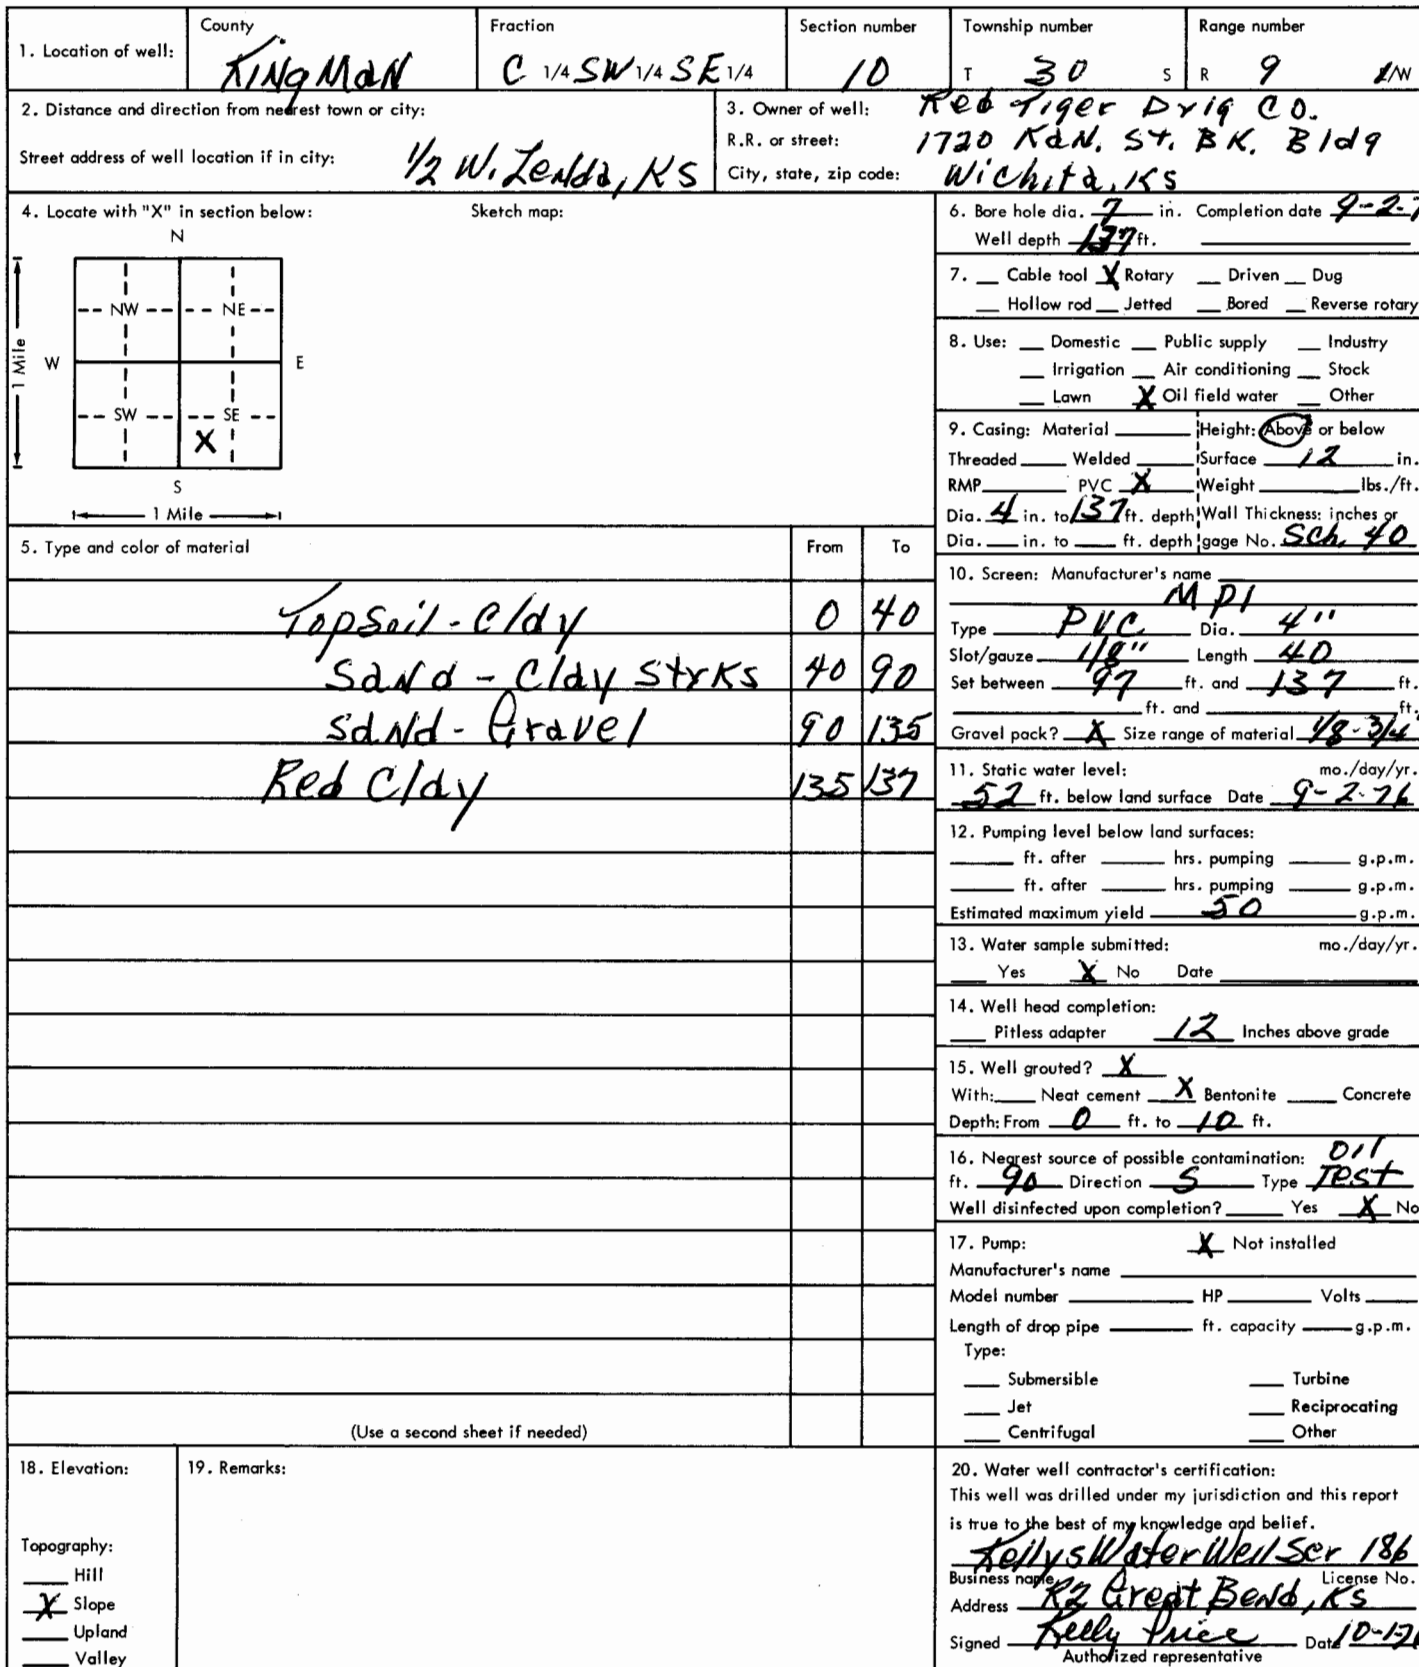 1. Location of well:
County KINgMaN
Fraction C 1/4 SW 1/4 SE 1/4
Section number 10
Township number T 30 S
Range number R 9 /W
2. Distance and direction from nearest town or city:
Street address of well location if in city: 1/2 W. Zenda, KS
3. Owner of well: Red Tiger Drlg CO.
R.R. or street: 1720 KaN. St. BK. Bldg
City, state, zip code: Wichita, KS
4. Locate with "X" in section below: Sketch map:
N
NW NE
W E
1 Mile
SW SE
X
S
1 Mile
5. Type and color of material From To
Topsoil - Clay 0 40
SaNd - Clay StrKs 40 90
SaNd - Gravel 90 135
Red Clay 135 137
(Use a second sheet if needed)
6. Bore hole dia. 7 in. Completion date 9-2-7
Well depth 137 ft.
7. Cable tool X Rotary Driven Dug
Hollow rod Jetted Bored Reverse rotary
8. Use: Domestic Public supply Industry
Irrigation Air conditioning Stock
Lawn X Oil field water Other
9. Casing: Material Height: Above or below
Threaded Welded Surface 12 in.
RMP PVC X Weight lbs./ft.
Dia. 4 in. to 137 ft. depth Wall Thickness: inches or
Dia. in. to ft. depth gage No. Sch. 40
10. Screen: Manufacturer's name
MPI
Type PVC Dia. 4"
Slot/gauze 1/8" Length 40
Set between 97 ft. and 137 ft.
ft. and ft.
Gravel pack? X Size range of material 1/8-3/4
11. Static water level: mo./day/yr.
52 ft. below land surface Date 9-2-76
12. Pumping level below land surfaces:
ft. after hrs. pumping g.p.m.
ft. after hrs. pumping g.p.m.
Estimated maximum yield 50 g.p.m.
13. Water sample submitted: mo./day/yr.
Yes X No Date
14. Well head completion:
Pitless adapter 12 Inches above grade
15. Well grouted? X
With: Neat cement X Bentonite Concrete
Depth: From 0 ft. to 10 ft.
16. Nearest source of possible contamination: Oil
ft. 90 Direction S Type Test
Well disinfected upon completion? Yes X No
17. Pump: X Not installed
Manufacturer's name
Model number HP Volts
Length of drop pipe ft. capacity g.p.m.
Type:
Submersible Turbine
Jet Reciprocating
Centrifugal Other
18. Elevation:
Topography:
Hill
X Slope
Upland
Valley
19. Remarks:
20. Water well contractor's certification:
This well was drilled under my jurisdiction and this report
is true to the best of my knowledge and belief.
Kellys Water Well Ser 186
Business name License No.
Address R2 Great Bend, KS
Signed Kelly Price Date 10-1-76
Authorized representative